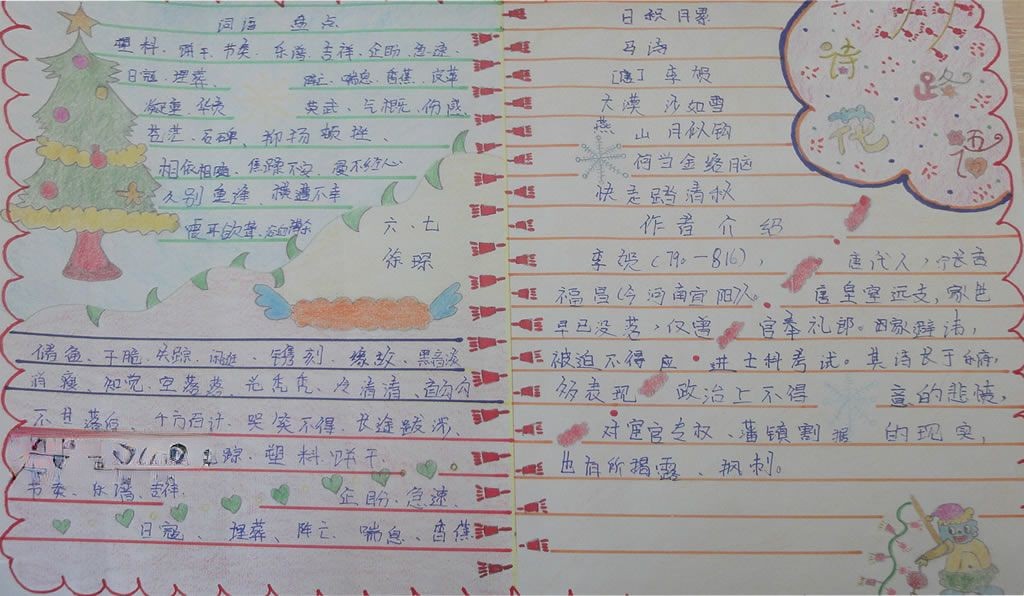 词语 盘点
塑料、饼干、节奏、乐谱、吉祥、企盼、急速、
日寇、埋葬、 阵亡、喘息、香蕉、皮革
凝重、华 英武、气概、伤感
苍茫、石碑、抑扬顿挫、
相依相 焦躁不安、漫不经心
久别重逢、横遭不幸
六、七
徐琛
储 鱼、干脆、失踪、闲逛、镌刻、缘故、黑
消瘦、知觉、空荡荡、光秃秃、冷清清、直勾勾
不甘落后、千方百计、哭笑不得、长途跋涉、
踪、塑料、饼干、
节奏、乐谱、吉祥、 企盼、急速、
日寇、埋葬、阵亡、喘息、香蕉
日积月累
马诗
[唐] 李贺
大漠沙如雪
燕山月似钩
何当金络脑
快走踏清秋
作者介绍
李贺(790—816), 唐代人,字长吉
福昌(今河南宜阳)人。 唐皇室远支,家世
早已没落,仅曾 官奉礼郎。因家避讳,
被迫不得应 进士科考试。其诗长于乐府,
多表现 政治上不得 意的悲愤,
对宦官专权、藩镇割据 的现实,
也有所揭露、讽刺。
诗
路
花
语